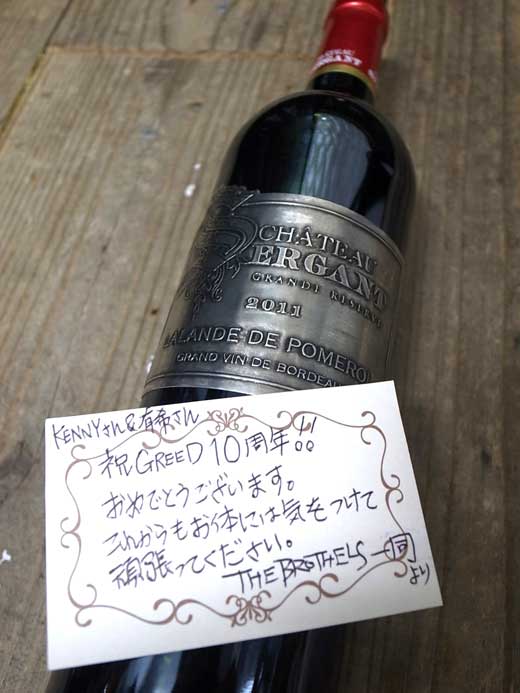 CHÂTEAU
ERGANT
CHÂTEAU
BERGANT
GRANDE RESERVE
2011
LALANDE DE POMEROL
GRAND VIN DE BORDEAU
KENNYさん&有希さん
祝GREED 10周年!!
おめでとうございます。
これからもお体には気をつけて
頑張ってください。
THE BROTHELS 一同
より